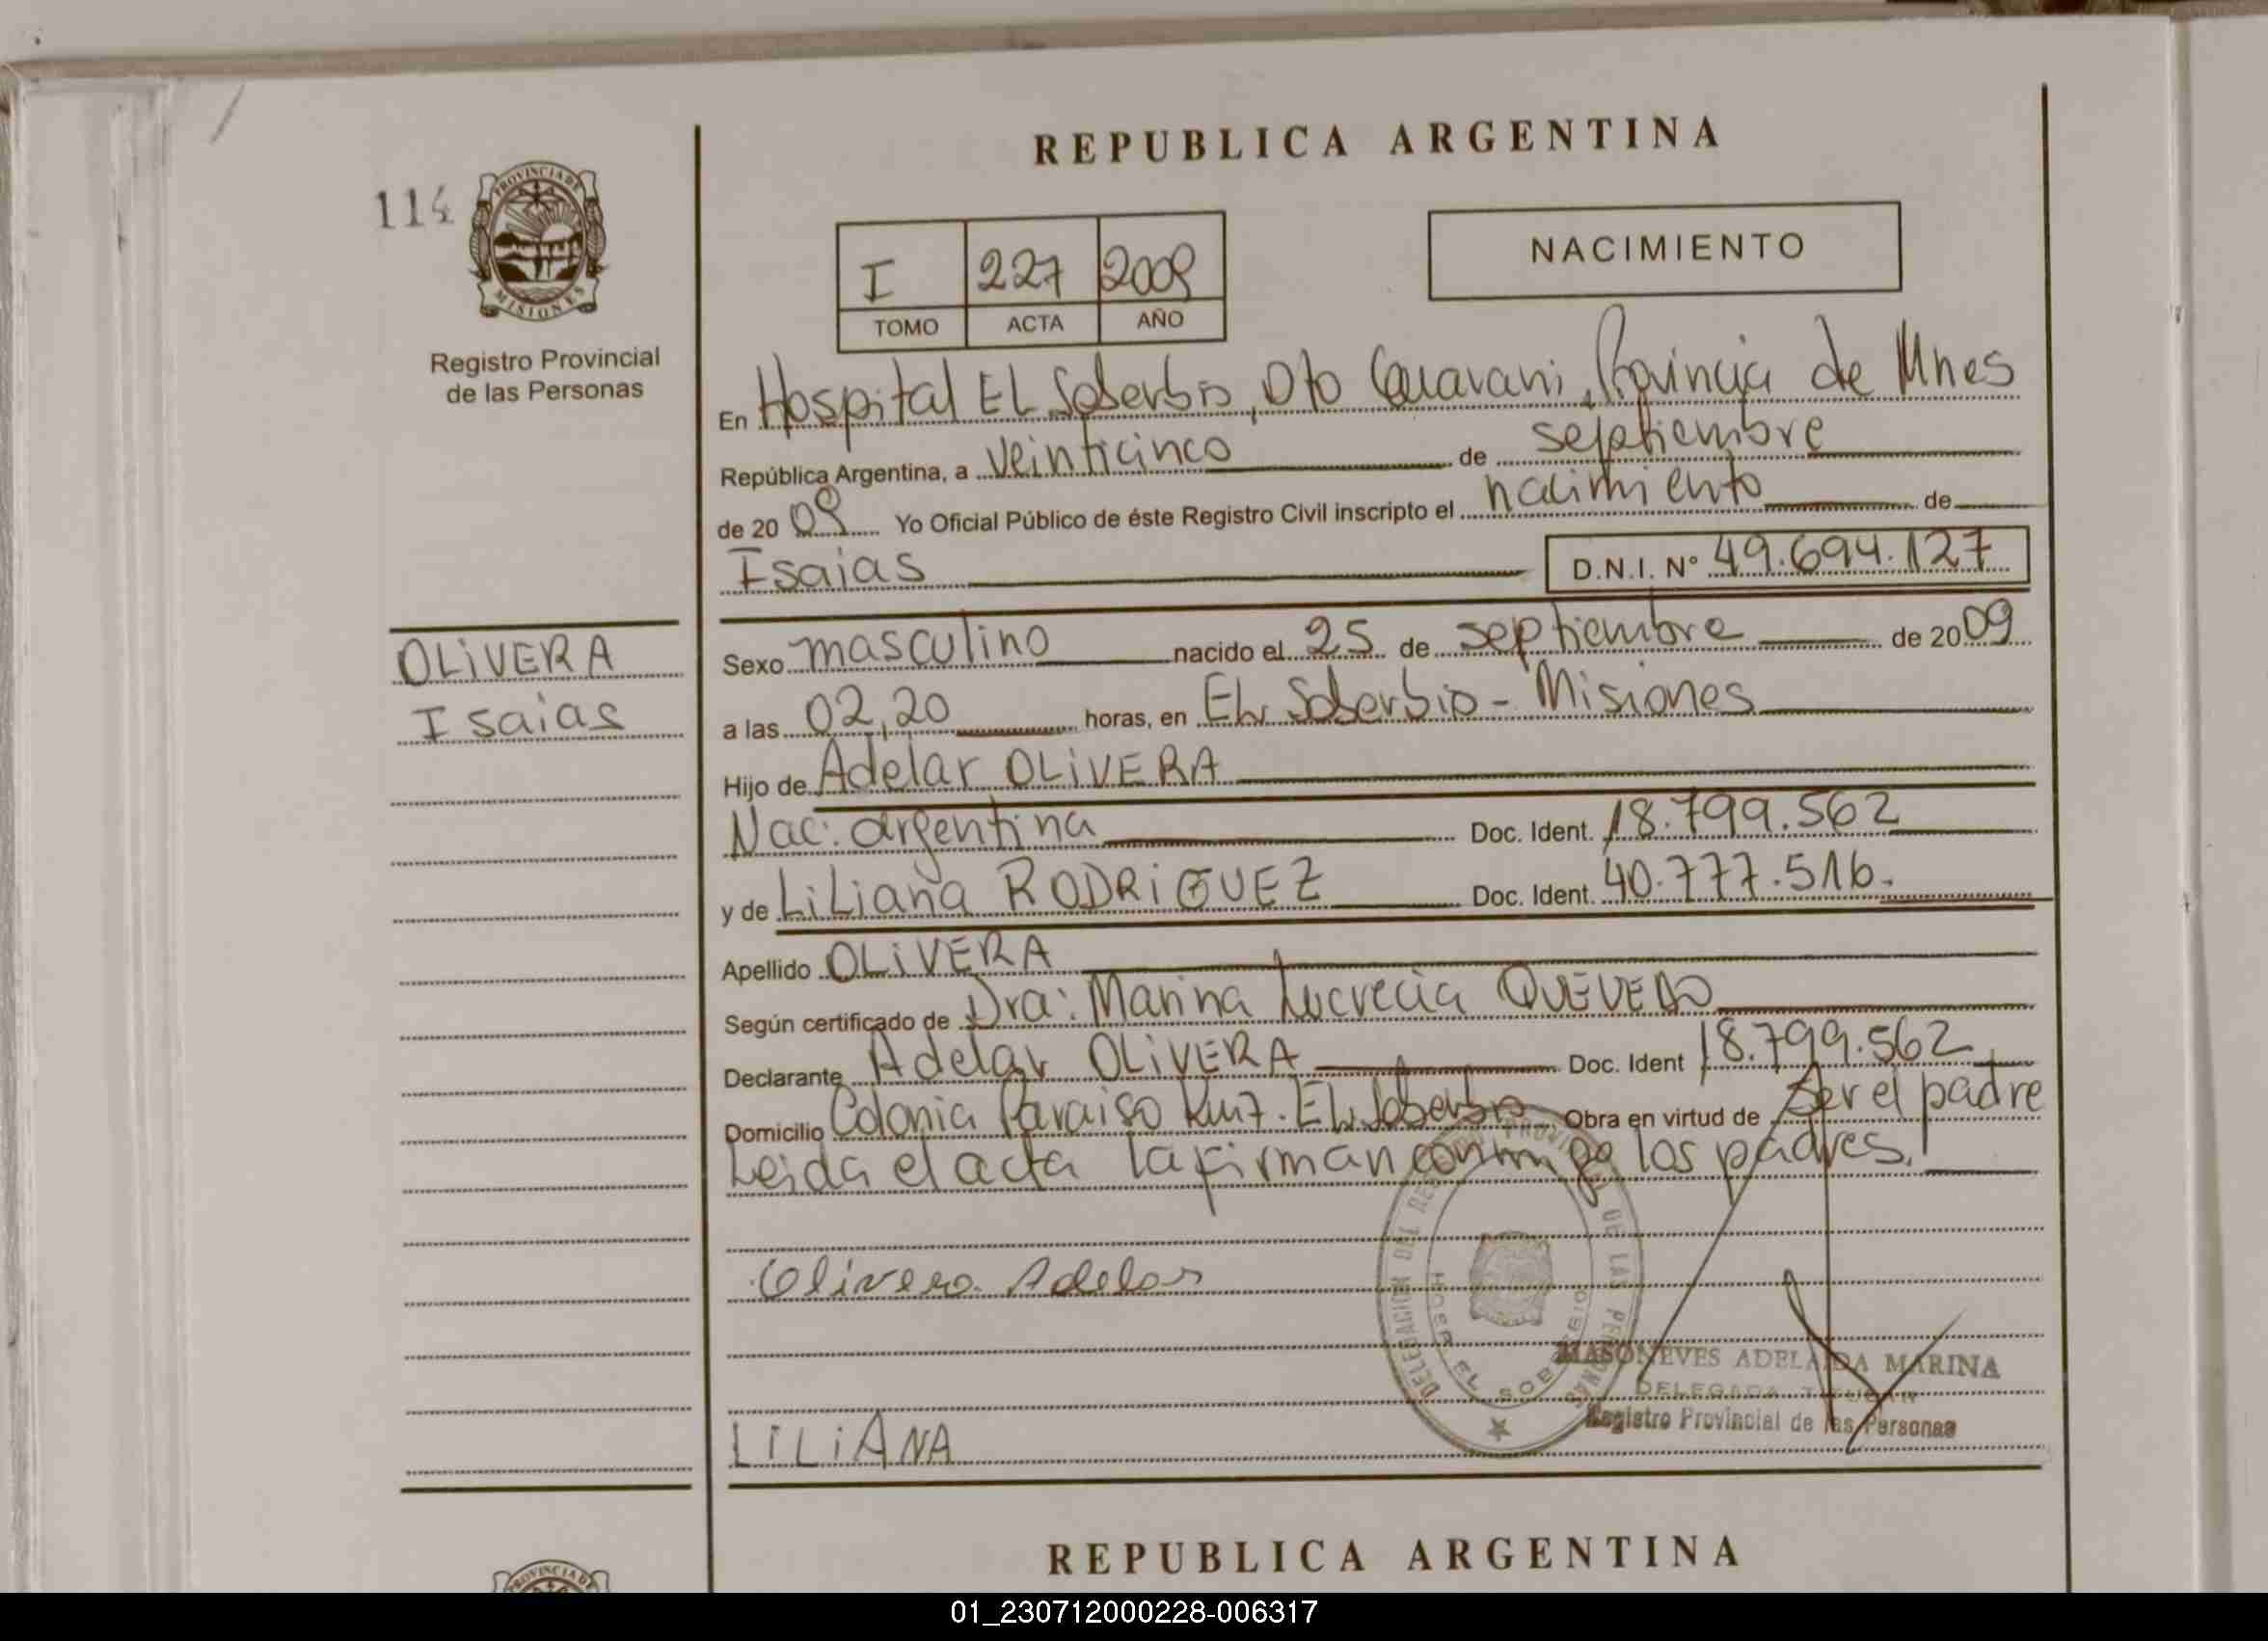 REPUBLICA ARGENTINA
114
PROVINCIA DE
MISIONES
Registro Provincial
de las Personas
I 227 2009
TOMO ACTA AÑO
NACIMIENTO
En Hospital EL Soberbio, Dto Guarani, Provincia de Mnes
República Argentina, a veinticinco de septiembre
de 20 09 Yo Oficial Público de éste Registro Civil inscripto el nacimiento de
Isaias D.N.I. Nº 49.694.127
OLIVERA
Isaias
Sexo masculino nacido el 25 de septiembre de 20 09
a las 02,20 horas, en EL Soberbio - Misiones
Hijo de Adelar OLIVERA
Nac: argentina Doc. Ident. 18.799.562
y de LiLiana RODRIGUEZ Doc. Ident. 40.777.516.
Apellido OLIVERA
Según certificado de Dra: Marina Lucrecia QUEVEDO
Declarante Adelar OLIVERA Doc. Ident 18.799.562
Domicilio Colonia Paraiso Km7. EL Soberbio Obra en virtud de Ser el padre
Leida el acta la firman conmigo los padres.
Olivera Adelar
DELEGACION DEL REGISTRO PROVINCIAL DE LAS PERSONAS
EL SOBERBIO
MASONEVES ADELAIDA MARINA
DELEGADA TITULAR
Registro Provincial de las Personas
LILIANA
REPUBLICA ARGENTINA
PROVINCIA DE
01_230712000228-006317